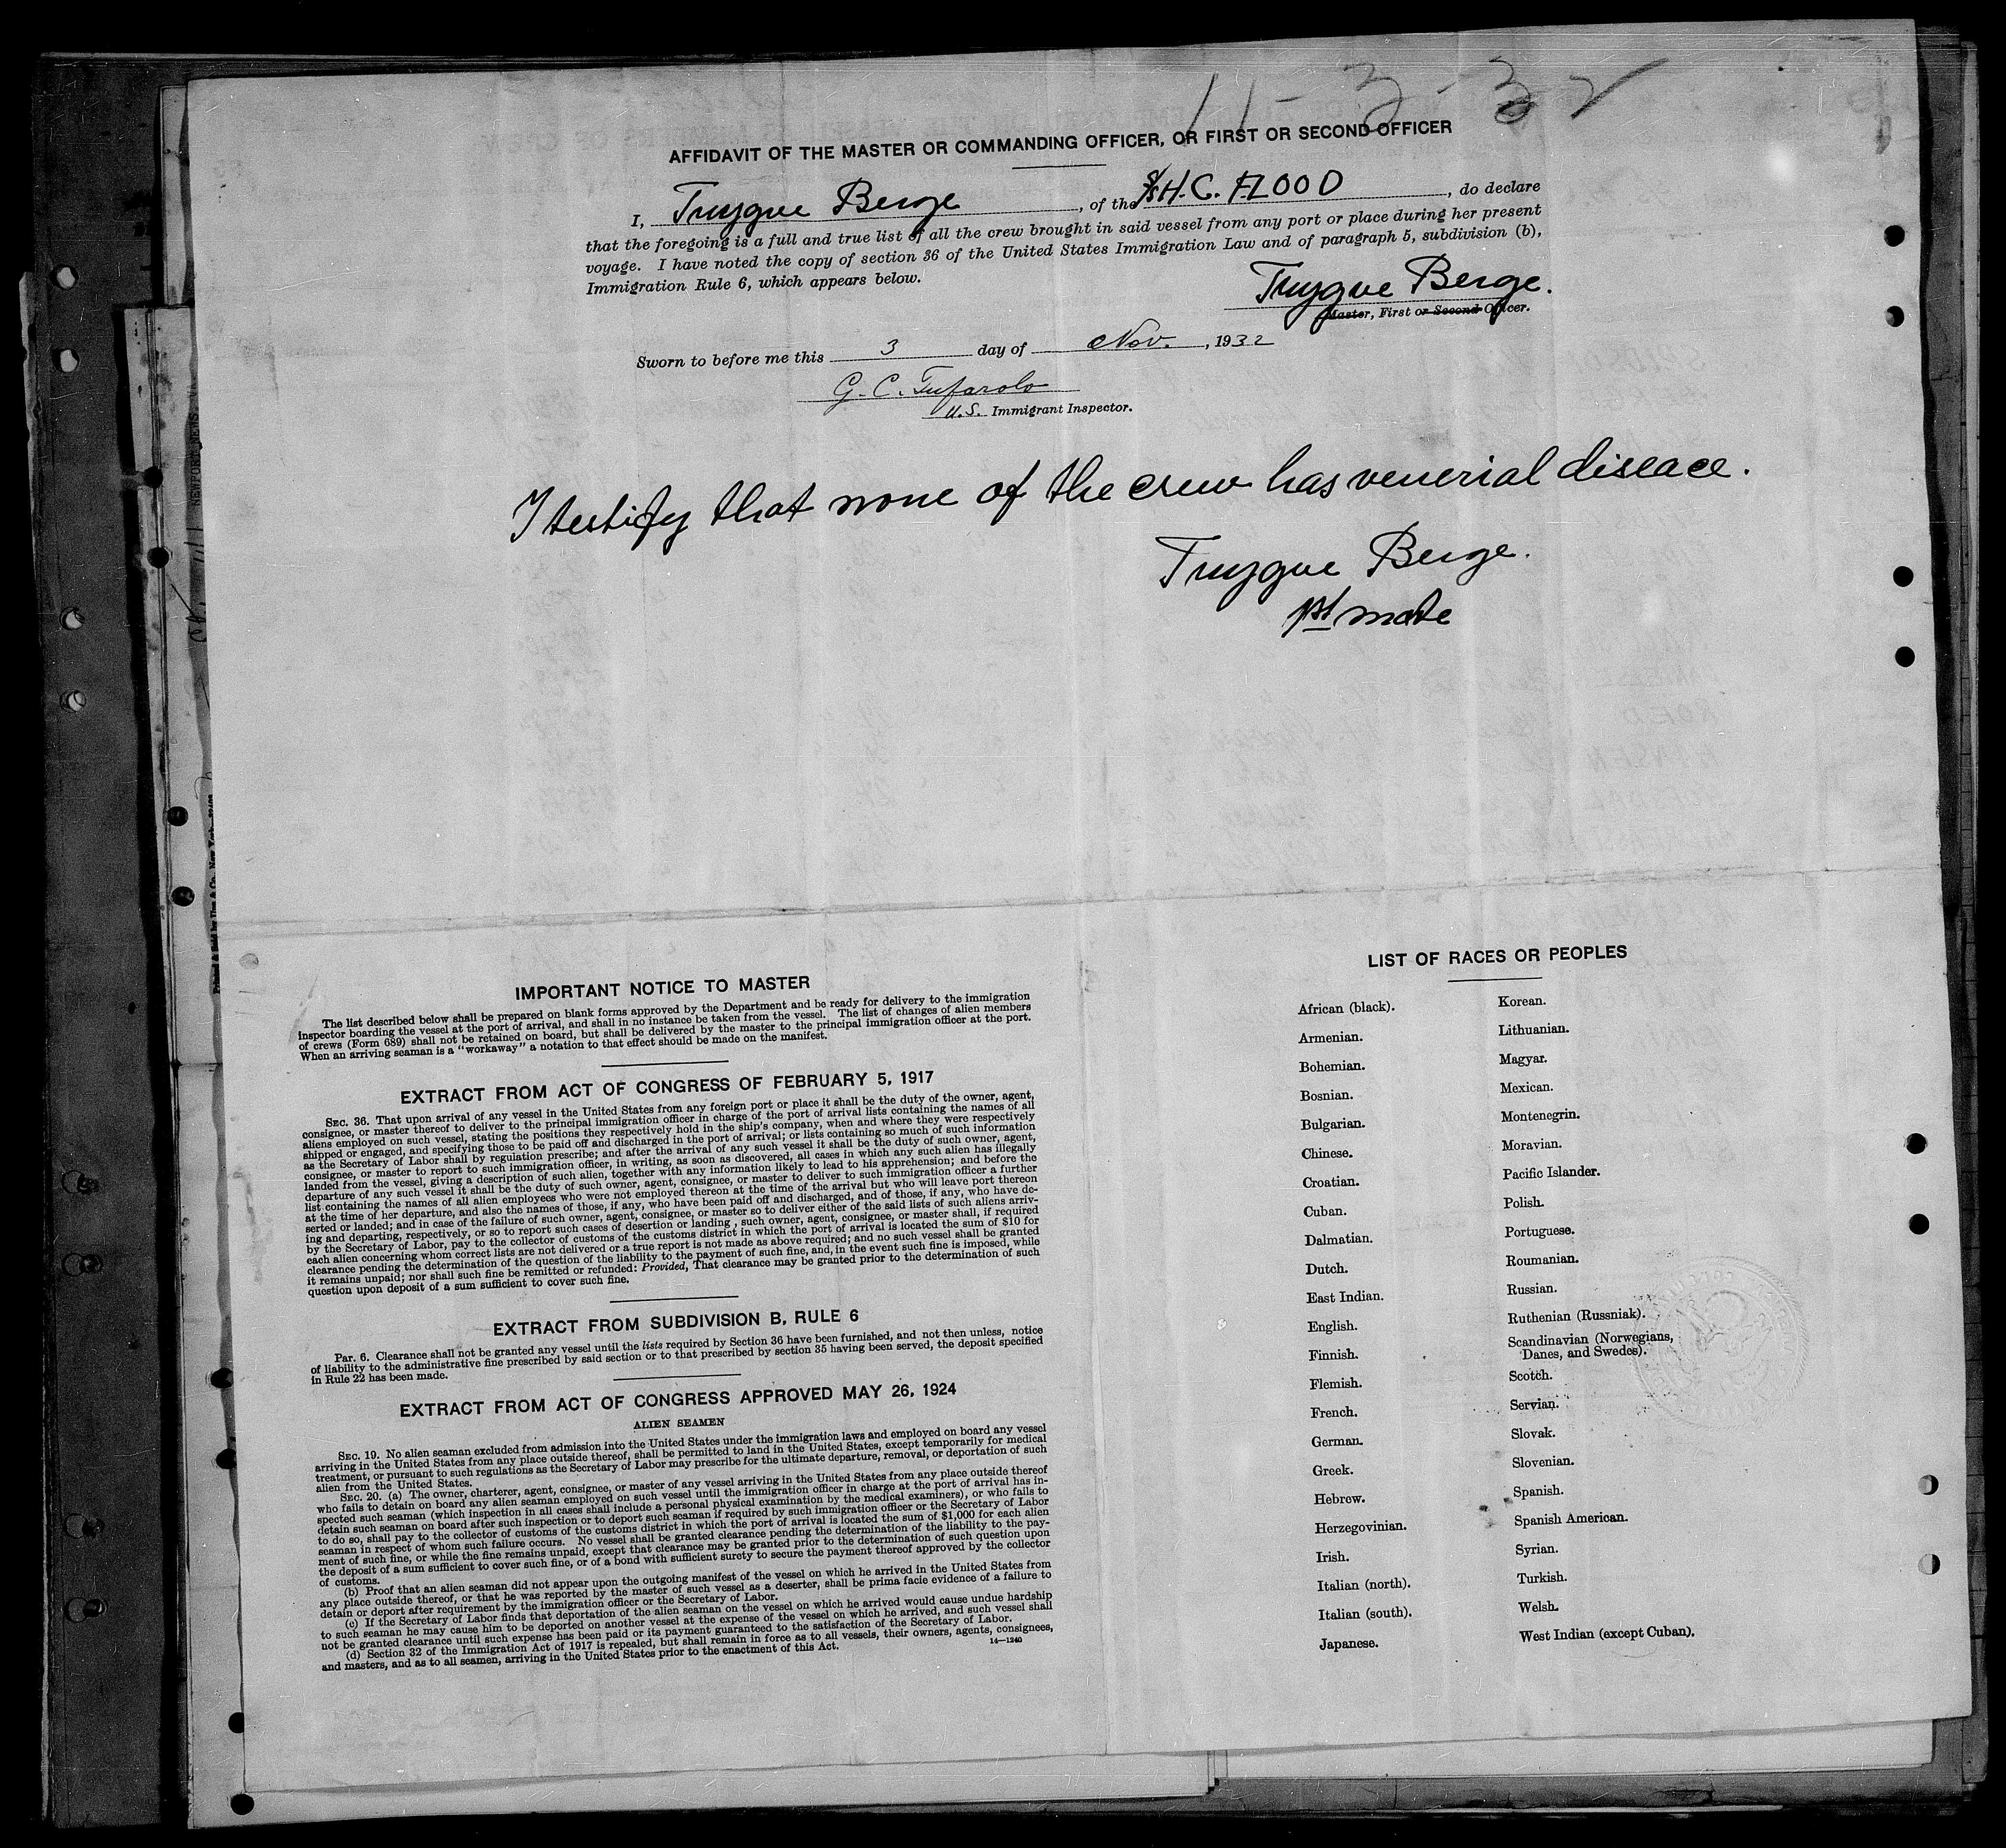 11-3-32
AFFIDAVIT OF THE MASTER OR COMMANDING OFFICER, OR FIRST OR SECOND OFFICER
I, Trygve Berge, of the S/S H.C. FLOOD, do declare
that the foregoing is a full and true list of all the crew brought in said vessel from any port or place during her present
voyage. I have noted the copy of section 36 of the United States Immigration Law and of paragraph 5, subdivision (b),
Immigration Rule 6, which appears below.
Trygve Berge.
Master, First or Second Officer.
Sworn to before me this 3 day of Nov., 1932
G. C. Tufarolo
U.S. Immigrant Inspector.
I testify that none of the crew has venerial diseace.
Trygve Berge.
1st mate
IMPORTANT NOTICE TO MASTER
The list described below shall be prepared on blank forms approved by the Department and be ready for delivery to the immigration
inspector boarding the vessel at the port of arrival, and shall in no instance be taken from the vessel. The list of changes of alien members
of crews (Form 689) shall not be retained on board, but shall be delivered by the master to the principal immigration officer at the port.
When an arriving seaman is a "workaway" a notation to that effect should be made on the manifest.
EXTRACT FROM ACT OF CONGRESS OF FEBRUARY 5, 1917
SEC. 36. That upon arrival of any vessel in the United States from any foreign port or place it shall be the duty of the owner, agent,
consignee, or master thereof to deliver to the principal immigration officer in charge of the port of arrival lists containing the names of all
aliens employed on such vessel, stating the positions they respectively hold in the ship's company, when and where they were respectively
shipped or engaged, and specifying those to be paid off and discharged in the port of arrival; or lists containing so much of such information
as the Secretary of Labor shall by regulation prescribe; and after the arrival of any such vessel it shall be the duty of such owner, agent,
consignee, or master to report to such immigration officer, in writing, as soon as discovered, all cases in which any such alien has illegally
landed from the vessel, giving a description of such alien, together with any information likely to lead to his apprehension; and before the
departure of any such vessel it shall be the duty of such owner, agent, consignee, or master to deliver to such immigration officer a further
list containing the names of all alien employees who were not employed thereon at the time of the arrival but who will leave port thereon
at the time of her departure, and also the names of those, if any, who have been paid off and discharged, and of those, if any, who have de-
serted or landed; and in case of the failure of such owner, agent, consignee, or master so to deliver either of the said lists of such aliens arriv-
ing and departing, respectively, or so to report such cases of desertion or landing, such owner, agent, consignee, or master shall, if required
by the Secretary of Labor, pay to the collector of customs of the customs district in which the port of arrival is located the sum of $10 for
each alien concerning whom correct lists are not delivered or a true report is not made as above required; and no such vessel shall be granted
clearance pending the determination of the question of the liability to the payment of such fine, and, in the event such fine is imposed, while
it remains unpaid; nor shall such fine be remitted or refunded: Provided, That clearance may be granted prior to the determination of such
question upon deposit of a sum sufficient to cover such fine.
EXTRACT FROM SUBDIVISION B, RULE 6
Par. 6. Clearance shall not be granted any vessel until the lists required by Section 36 have been furnished, and not then unless, notice
of liability to the administrative fine prescribed by said section or to that prescribed by section 35 having been served, the deposit specified
in Rule 22 has been made.
EXTRACT FROM ACT OF CONGRESS APPROVED MAY 26, 1924
ALIEN SEAMEN
SEC. 19. No alien seaman excluded from admission into the United States under the immigration laws and employed on board any vessel
arriving in the United States from any place outside thereof, shall be permitted to land in the United States, except temporarily for medical
treatment, or pursuant to such regulations as the Secretary of Labor may prescribe for the ultimate departure, removal, or deportation of such
alien from the United States.
SEC. 20. (a) The owner, charterer, agent, consignee, or master of any vessel arriving in the United States from any place outside thereof
who fails to detain on board any alien seaman employed on such vessel until the immigration officer in charge at the port of arrival has in-
spected such seaman (which inspection in all cases shall include a personal physical examination by the medical examiners), or who fails to
detain such seaman on board after such inspection or to deport such seaman if required by such immigration officer or the Secretary of Labor
to do so, shall pay to the collector of customs of the customs district in which the port of arrival is located the sum of $1,000 for each alien
seaman in respect of whom such failure occurs. No vessel shall be granted clearance pending the determination of the liability to the pay-
ment of such fine, or while the fine remains unpaid, except that clearance may be granted prior to the determination of such question upon
the deposit of a sum sufficient to cover such fine, or of a bond with sufficient surety to secure the payment thereof approved by the collector
of customs.
(b) Proof that an alien seaman did not appear upon the outgoing manifest of the vessel on which he arrived in the United States from
any place outside thereof, or that he was reported by the master of such vessel as a deserter, shall be prima facie evidence of a failure to
detain or deport after requirement by the immigration officer or the Secretary of Labor.
(c) If the Secretary of Labor finds that deportation of the alien seaman on the vessel on which he arrived would cause undue hardship
to such seaman he may cause him to be deported on another vessel at the expense of the vessel on which he arrived, and such vessel shall
not be granted clearance until such expense has been paid or its payment guaranteed to the satisfaction of the Secretary of Labor.
(d) Section 32 of the Immigration Act of 1917 is repealed, but shall remain in force as to all vessels, their owners, agents, consignees,
and masters, and as to all seamen, arriving in the United States prior to the enactment of this Act.
14—1240
LIST OF RACES OR PEOPLES
African (black).
Armenian.
Bohemian.
Bosnian.
Bulgarian.
Chinese.
Croatian.
Cuban.
Dalmatian.
Dutch.
East Indian.
English.
Finnish.
Flemish.
French.
German.
Greek.
Hebrew.
Herzegovinian.
Irish.
Italian (north).
Italian (south).
Japanese.
Korean.
Lithuanian.
Magyar.
Mexican.
Montenegrin.
Moravian.
Pacific Islander.
Polish.
Portuguese.
Roumanian.
Russian.
Ruthenian (Russniak).
Scandinavian (Norwegians,
Danes, and Swedes).
Scotch.
Servian.
Slovak.
Slovenian.
Spanish.
Spanish American.
Syrian.
Turkish.
Welsh.
West Indian (except Cuban).